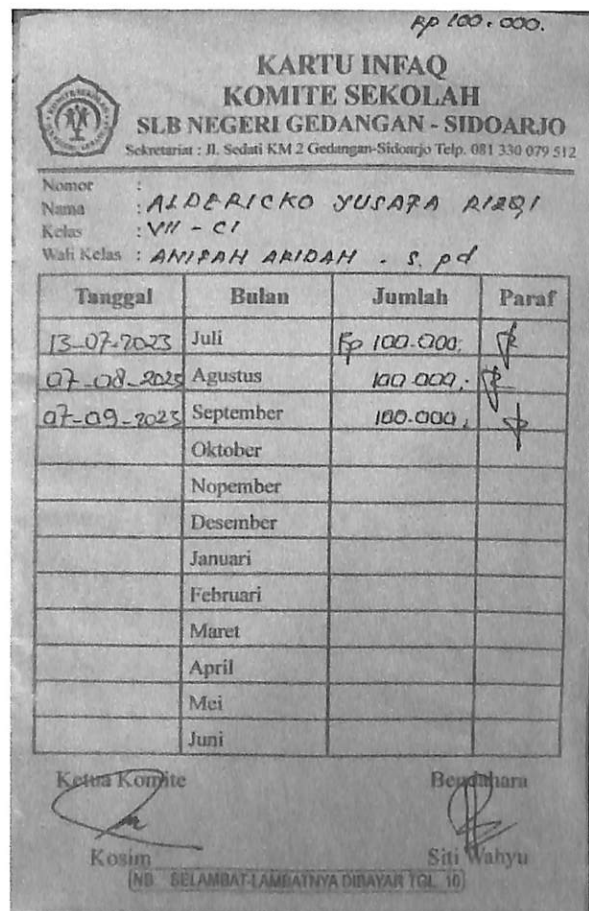 Rp 100.000.
KARTU INFAQ
KOMITE SEKOLAH
SLB NEGERI GEDANGAN - SIDOARJO
Sekretariat : Jl. Sedati KM 2 Gedangan-Sidoarjo Telp. 081 330 079 512
Nomor :
Nama : ALDERICKO YUSAFA RIZQI
Kelas : VII - C1
Wali Kelas : ANIFAH ARIDAH . S. pd
Tanggal Bulan Jumlah Paraf
13-07-2023 Juli Rp 100.000;
07-08-2023 Agustus 100.000,-
07-09-2023 September 100.000,
Oktober
Nopember
Desember
Januari
Februari
Maret
April
Mei
Juni
Ketua Komite Bendahara
Kosim Siti Wahyu
NB. SELAMBAT-LAMBATNYA DIBAYAR TGL. 10